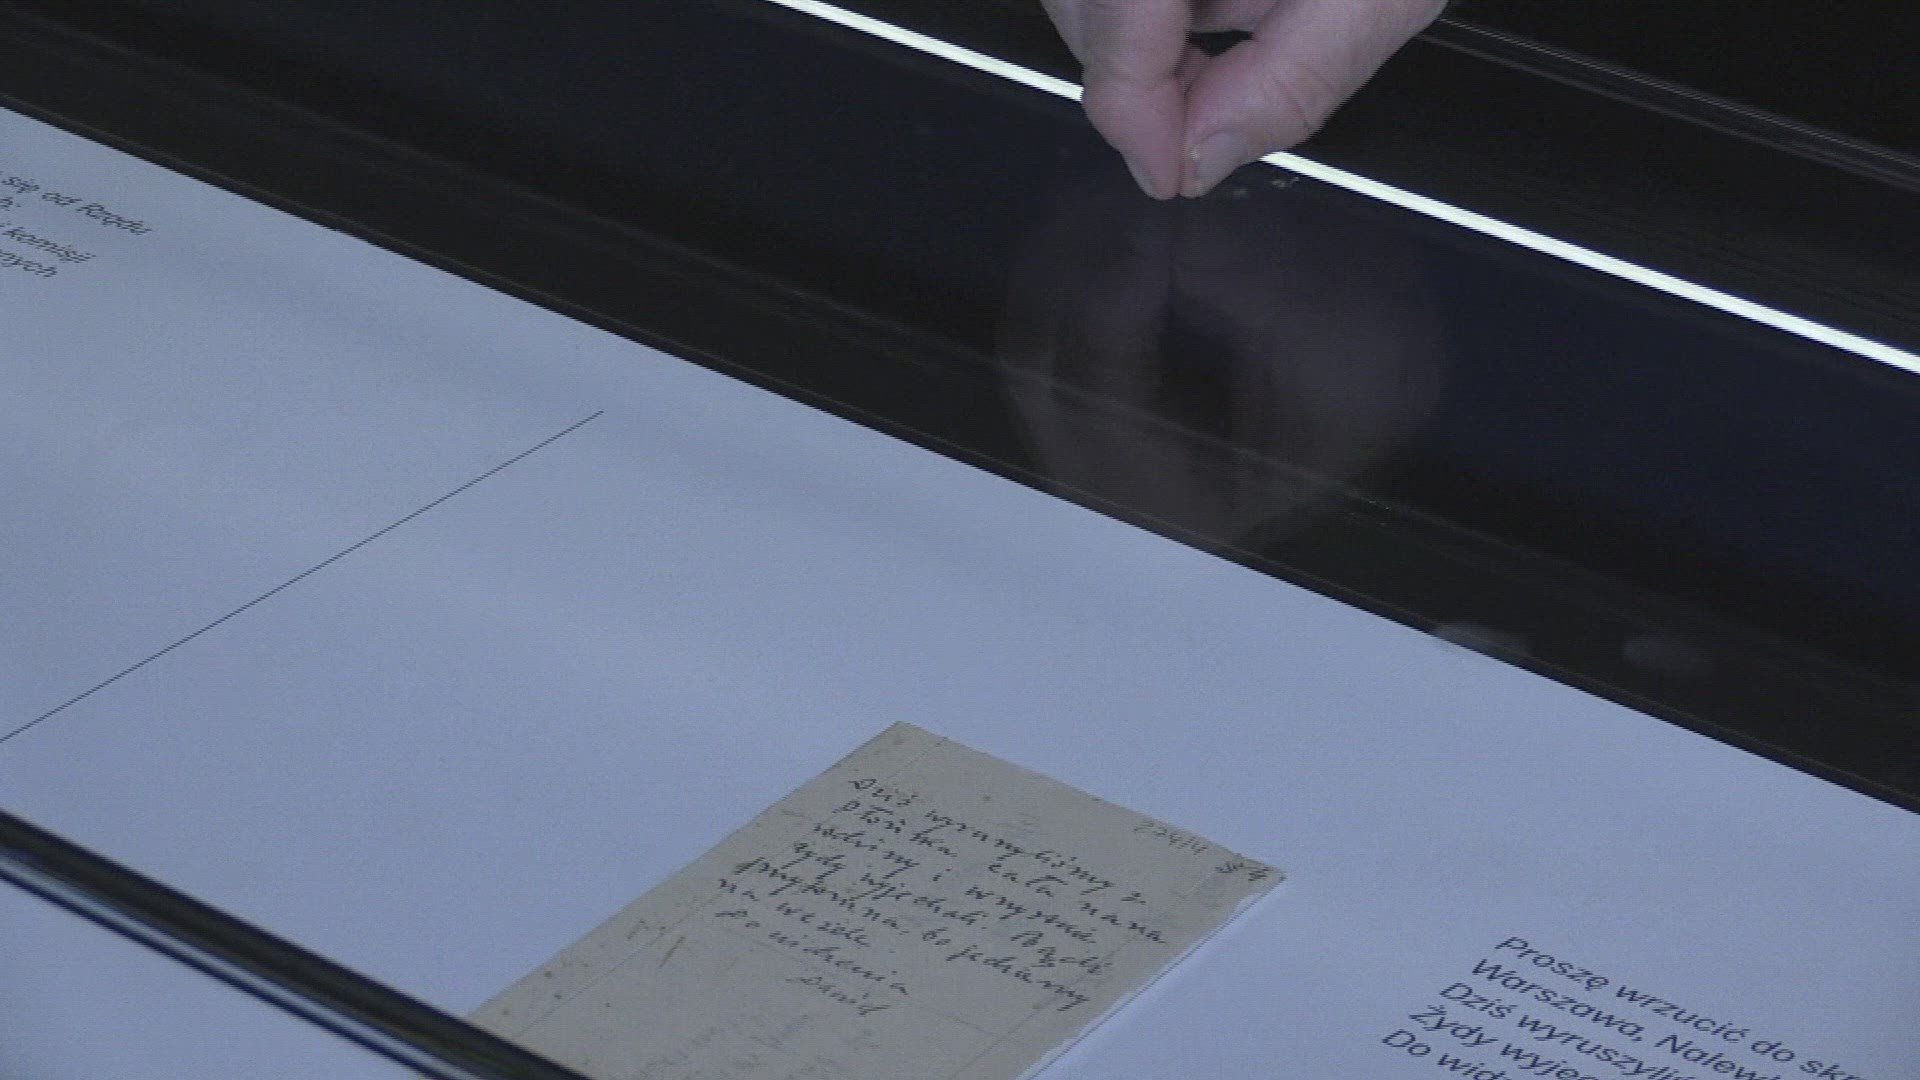 się od Rządu
h:
i komisji
nych
Dziś wyruszyliśmy z
Płońska cała nasza
rodziny i wszyscy
żydzi wyjechali. Bądź
przytomna, bo jedziemy
na wesele
Do widzenia
Dawid
2741/4
Proszę wrzucić do skr
Warszawa, Nalew
Dziś wyruszyliś
Żydy wyjec
Do widz